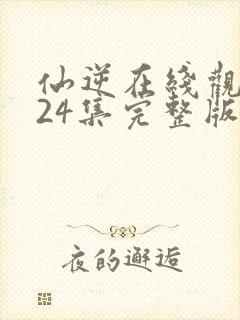 仙逆在綫觀
24集完整版
夜的邂逅